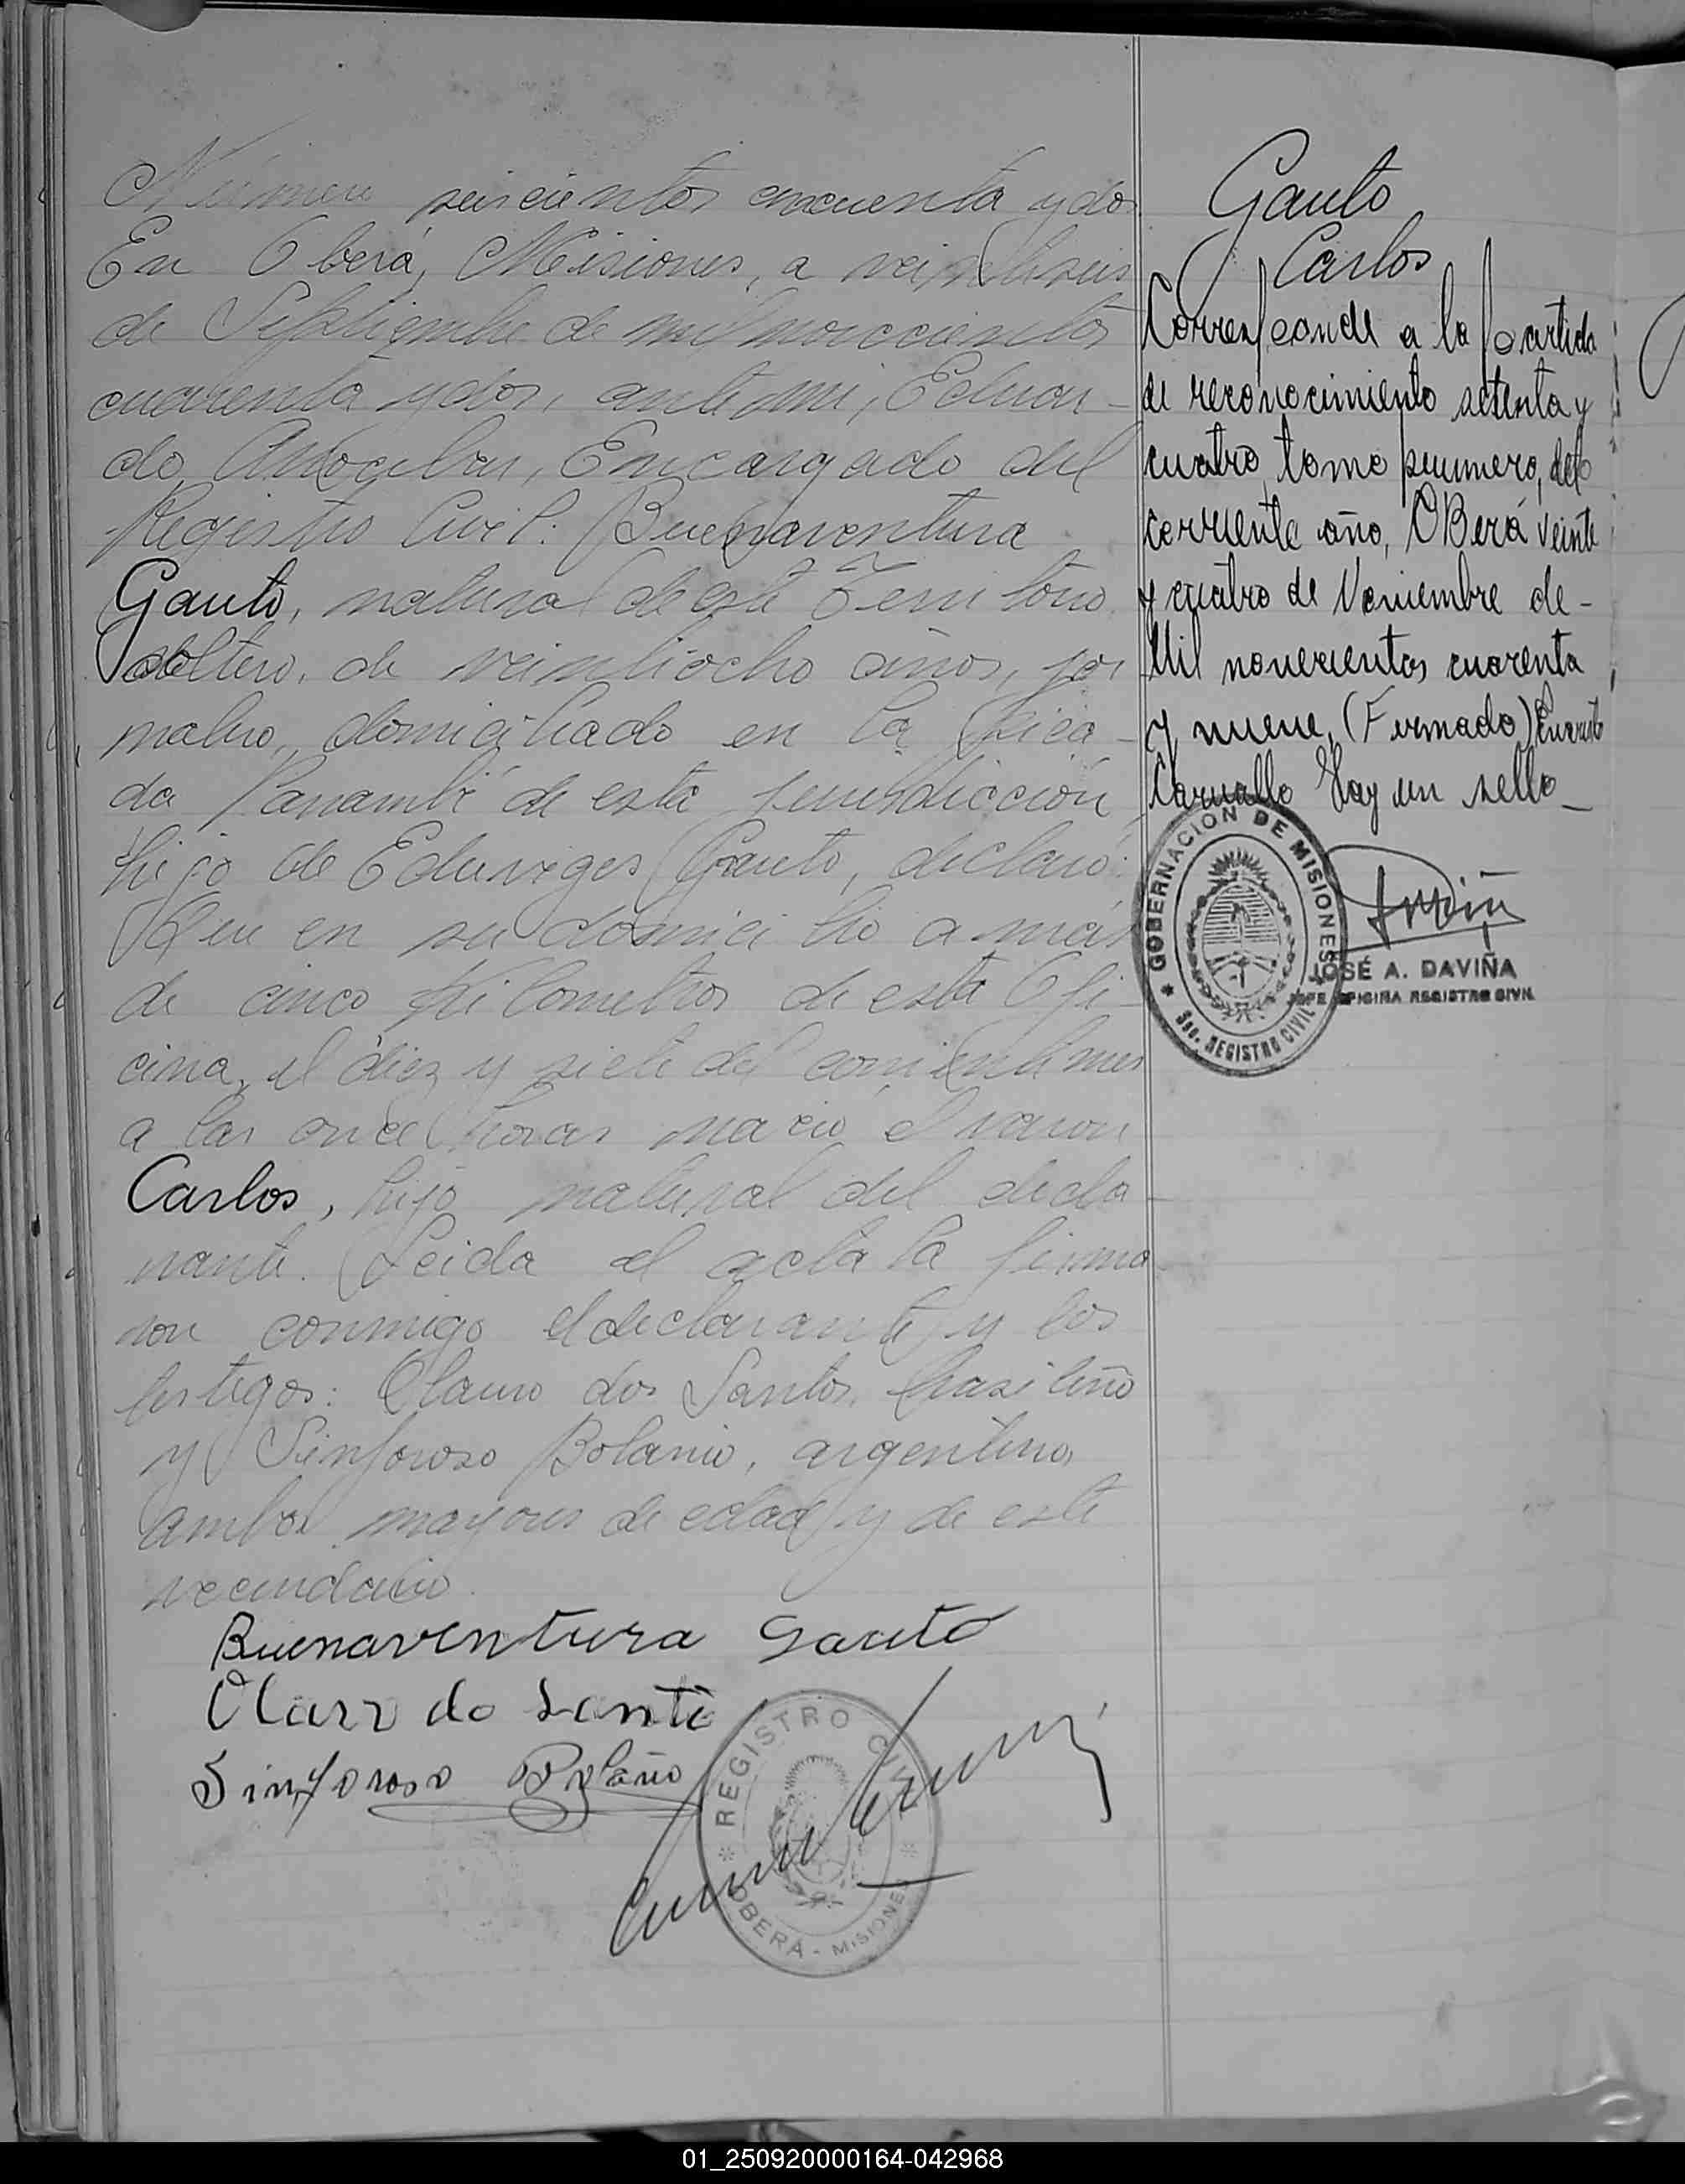 Número seiscientos cincuenta y dos
En Oberá, Misiones, a veintiseis
de Septiembre de mil novecientos
cuarenta y dos, ante mi, Eduar-
do, Encargado del
Registro Civil: Buenaventura
Gauto, natural de este Territorio
soltero, de veintiocho años, jor
nalero, domiciliado en la pica-
da Panambí de esta jurisdicción,
hijo de Eduviges Gauto, declaró:
Que en su domicilio a más
de cinco kilometros de esta Ofi-
cina, el diez y siete del corriente mes
a las once horas nació el varon
Carlos, hijo natural del decla-
rante. Leida el acta la firma-
ron conmigo el declarante y los
testigos: Olauro dos Santos, brasileño
y Sinforoso Bolanio, argentino,
ambos mayores de edad y de este
vecindario.
Buenaventura Gauto
do
Sinforoso Bolaño
REGISTRO CIVIL
OBERÁ - MISIONES
Gauto
Carlos
Corresponde a la partida
de reconocimiento setenta y
cuatro, tomo primero, del
corriente año, OBerá veinte
y cuatro de Noviembre de-
Mil novecientos cuarenta
y nueve, (Firmado) Evaristo
Carvallo Hay un sello-
GOBERNACION DE MISIONES
Sec. REGISTRO CIVIL
JOSÉ A. DAVIÑA
JEFE OFICINA REGISTRO CIVIL
01_250920000164-042968